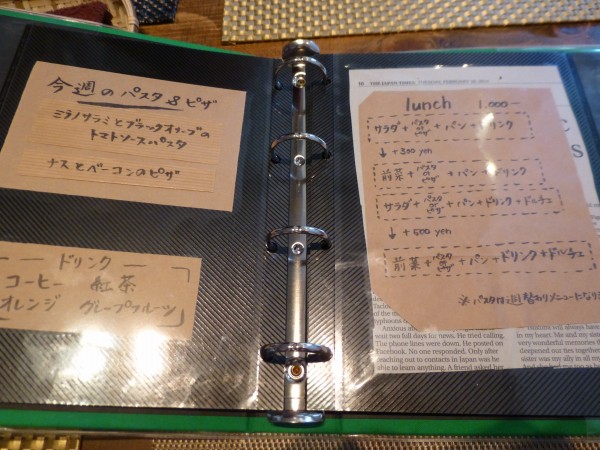 今週のパスタ&ピザ
ミラノサラミとブラックオリーブの
トマトソースパスタ
ナスとベーコンのピザ
ドリンク
コーヒー 紅茶
オレンジ グレープフルーツ
10 THE JAPAN TIMES
lunch 1,000-
サラダ+パスタorピザ+パン+ドリンク
↓+300 yen
前菜+パスタorピザ+パン+ドリンク
サラダ+パスタorピザ+パン+ドリンク+ドルチェ
↓+500 yen
前菜+パスタorピザ+パン+ドリンク+ドルチェ
※パスタは週替わりメニューになりま
Anxious abou
wait two full days for news. He tried calling.
The phone lines were down. He posted on
Facebook. No one responded. Only after
reaching out to contacts in Japan was he
able to learn anything. A friend asked her
will always have
in my heart. Me and my
very wonderful memories
deepened our ties together
sister was my ally in all my